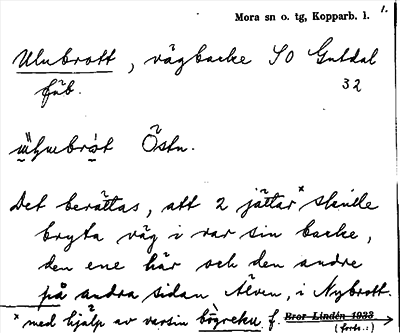 1.
Mora sn o. tg, Kopparb. l.
Ulubrott, vägbacke SO Gutdal
fäb.
32
Östn.
Det berättas, att 2 jättar x skulle
bryta väg i var sin backe,
den ene här och den andre
på andra sidan Älven, i Nybrott.
x med hjälp av varsin bögreku f. Bror Lindén 1933
(forts.:)